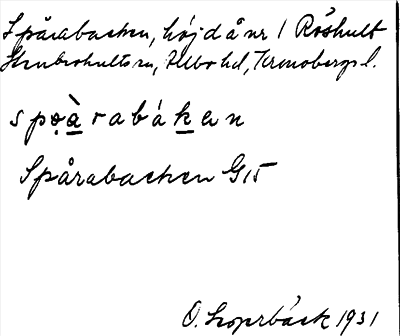 Spårabacken, höjd å nr 1 Röshult
Stenbrohults sn, Allbo hd, Kronobergs l.
spo̩àrabákan
Spårabacken G15
O. Koprbäck 1931